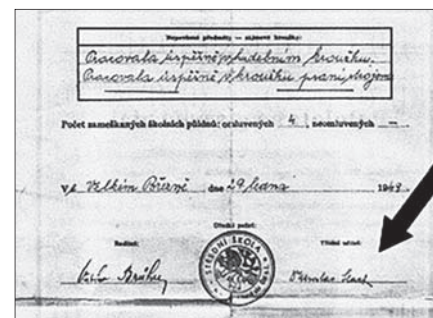 Nepovinné předměty — zájmové kroužky:
Pracovala úspěšně v hudebním kroužku.
Pracovala úspěšně v kroužku psaní strojem
Počet zameškaných školních půldnů: omluvených 4, neomluvených —
Ve Velkém Březně dne 29 ledna 1949
Úřední pečeť:
Ředitel:
Třídní učitel:
STŘEDNÍ ŠKOLA